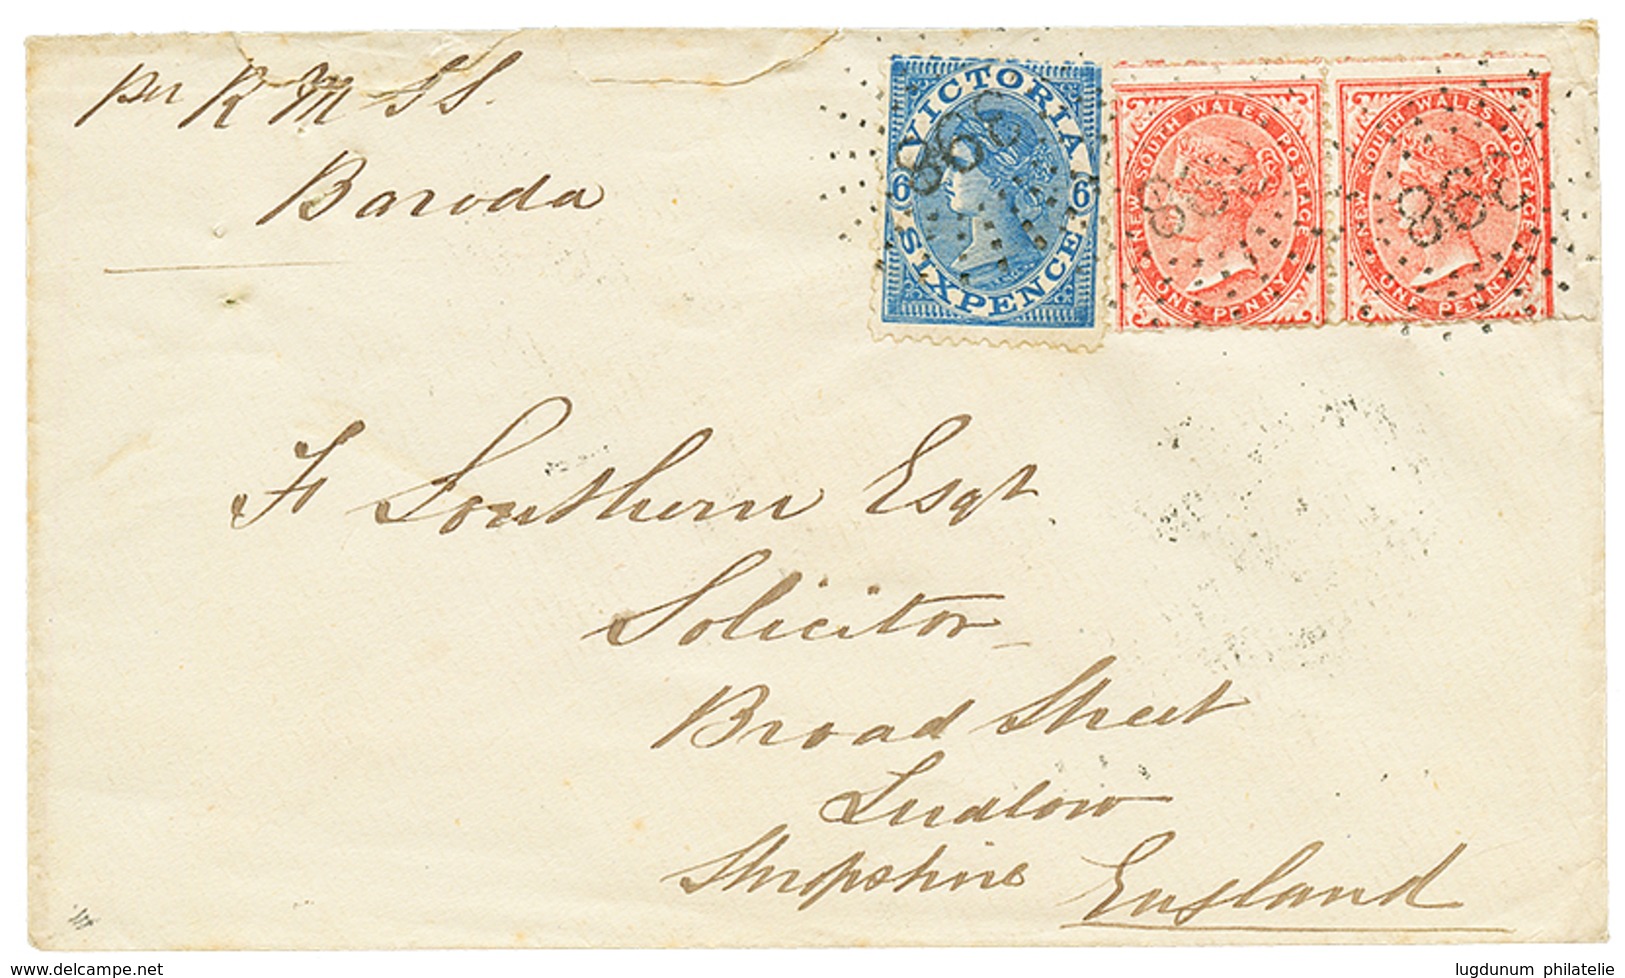 per R M S S.
Baroda
VICTORIA
6 6
SIXPENCE
NEW SOUTH WALES POSTAGE
ONE PENNY
NEW SOUTH WALES POSTAGE
ONE PENNY
Southern Esqr
Solicitor
Broad Street
Ludlow
Shropshire England
delcampe.net
lugdunum philatelie